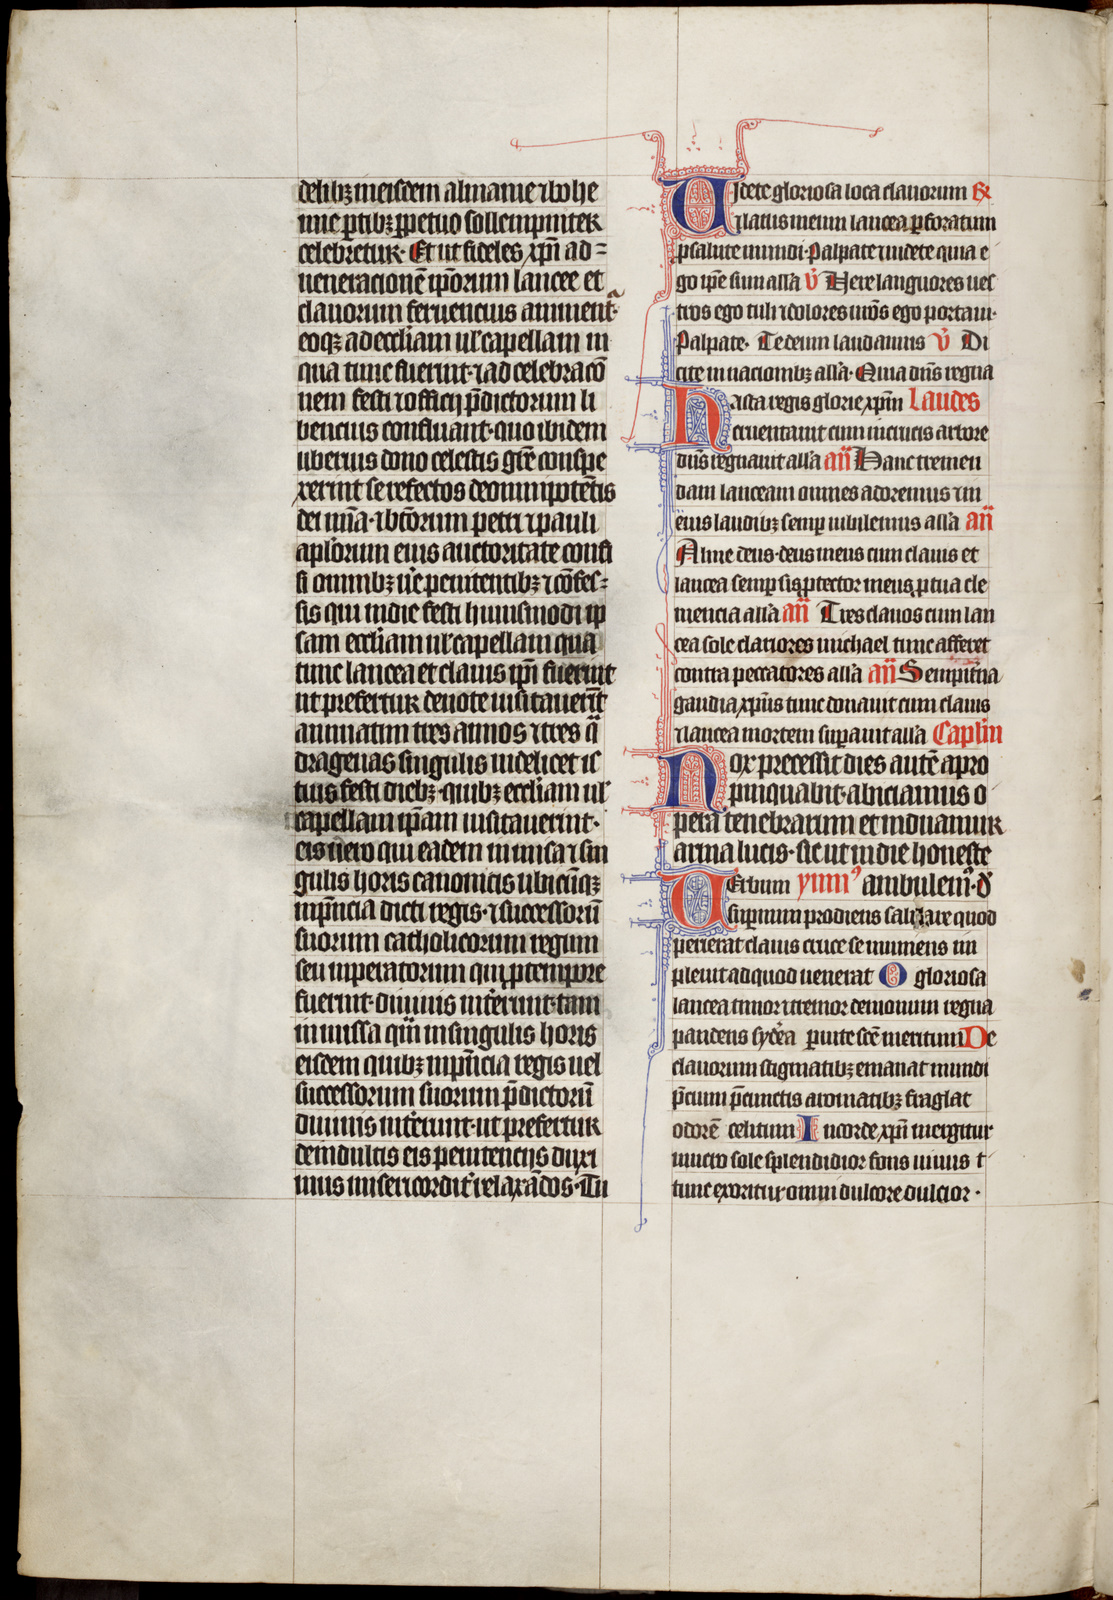 delibꝫ in eisdem almanie ⁊ bohe
mie ꝑtibꝫ ꝑpetuo sollempniter
celebretur· Et ut fideles xp̄i ad=
ueneracionē ip̄orum lancee et
clauorum feruencius animent᷑·
eoqꝫ ad eccl̄iam ul̓ capellam in
qua tunc fuerint· ⁊ ad celebracō
nem festi ⁊ officij p̄dictorum li
bencius confluant· quo ibidem
uberius dono celestis gr̄e conspe
xerint se refectos de om̄ipotētis
dei mīa· ⁊ bt̄orum petri ⁊ pauli
apl̓orum eius auctoritate confi
si omnibꝫ ue̓ penitentibꝫ ⁊ cōfes=
sis qui in die festi huiusmodi ip
sam eccl̄iam ul̓ capellam qua
tunc lancea et clauis ip̄i fuerint
ut prefertur deuote uisitauerīt
annuatim tres annos ⁊ tres q̄
dragenas singulis uidelicet is
tius festi diebꝫ· quibꝫ eccl̄iam ul̓
capellam ip̄am uisitauerint·
eis uero qui eadem in missa ⁊ sin
gulis horis canonicis ubicūqꝫ
inp̄ncia dicti regis· ⁊ successorū
suorum catholicorum regum
seu inperatorum qui ꝓ tempore
fuerint· diuinis int̓erunt· tam
in missa qm̄ in singulis horis
eisdem quibꝫ inp̄ncia regis uel
successorum suorum p̄dictorū
diuinis int̓erunt· ut prefertur
de indultis eis penitencijs duxi
mus misericordit̓ relaxādos· Tu
Uidete gloriosa loca clauorum ℞
⁊ latus meum lancea ꝑforatum
ꝓ salute mundi· Palpate uidete quia e
go ip̄e sum all̓a v̄ Here languores ues
tros ego tuli ⁊ dolores ur̄os ego portaui·
Palpate· Te deum laudamus v̄ Di
cite in nacionibꝫ all̓a· Quia dn̄s regna
Hasta regis glorie xp̄m Laudes
cruentauit cum in crucis arbore
dn̄s regnauit all̓a an̄ Hanc tremen
dam lanceam omnes adoremus ⁊ in
eius laudibꝫ semꝑ iubilemus all̓a an̄
Alme deus· deus meus cum clauis et
lancea semꝑ sis ꝓtector meus ꝑ tua cle
mencia all̓a an̄ Tres clauos cum lan
cea sole clariores michael tunc afferet
contra peccatores all̓a an̄ Sempit̓na
gaudia xp̄us tunc donauit cum clauis
⁊ lancea mortem suꝑauit all̓a Capl̓m
Nox precessit dies autē apro
pinquabit· abiciamus o
pera tenebrarum et induamur
arma lucis· sic ut in die honeste
Uerbum ymn᷒ ambulem᷒· d̓
suꝑnum prodiens salutare quod
penetrat clauis cruce se muniens in
pleuit ad quod uenerat O gloriosa
lancea timor ⁊ tremor demonum regna
pandens syde̓a ꝑ uite sc̄e meritum De
clauorum stigmatibꝫ emanat mundi
p̄cium p̄cunctis aromatibꝫ fraglat
odorē celitum In corde xp̄i mergitur
mucro sole splendidior fons uiuus t
tunc exoritur omni dulcore dulcior·